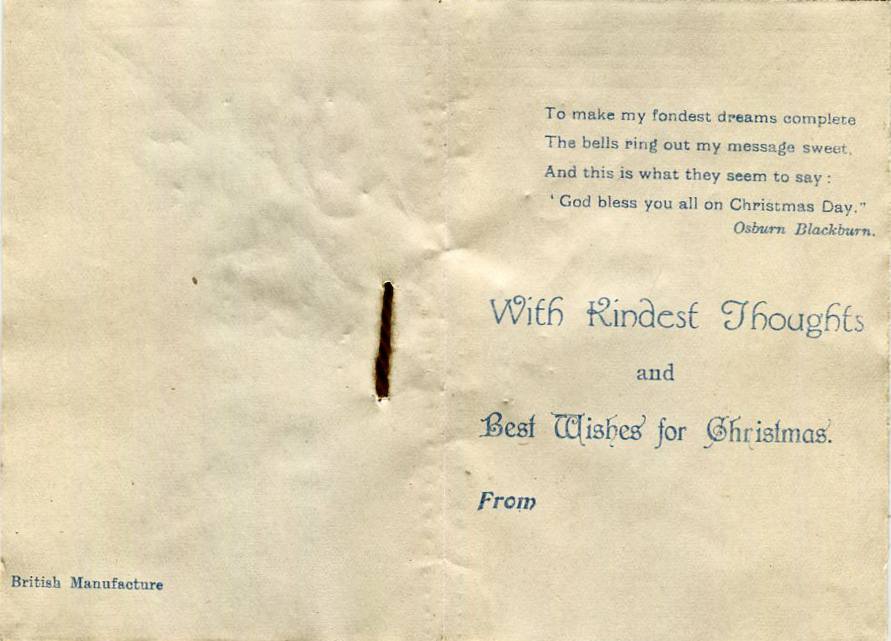 To make my fondest dreams complete
The bells ring out my message sweet,
And this is what they seem to say :
‘ God bless you all on Christmas Day.”
Osburn Blackburn.
With Kindest Thoughts
and
Best Wishes for Christmas.
From
British Manufacture